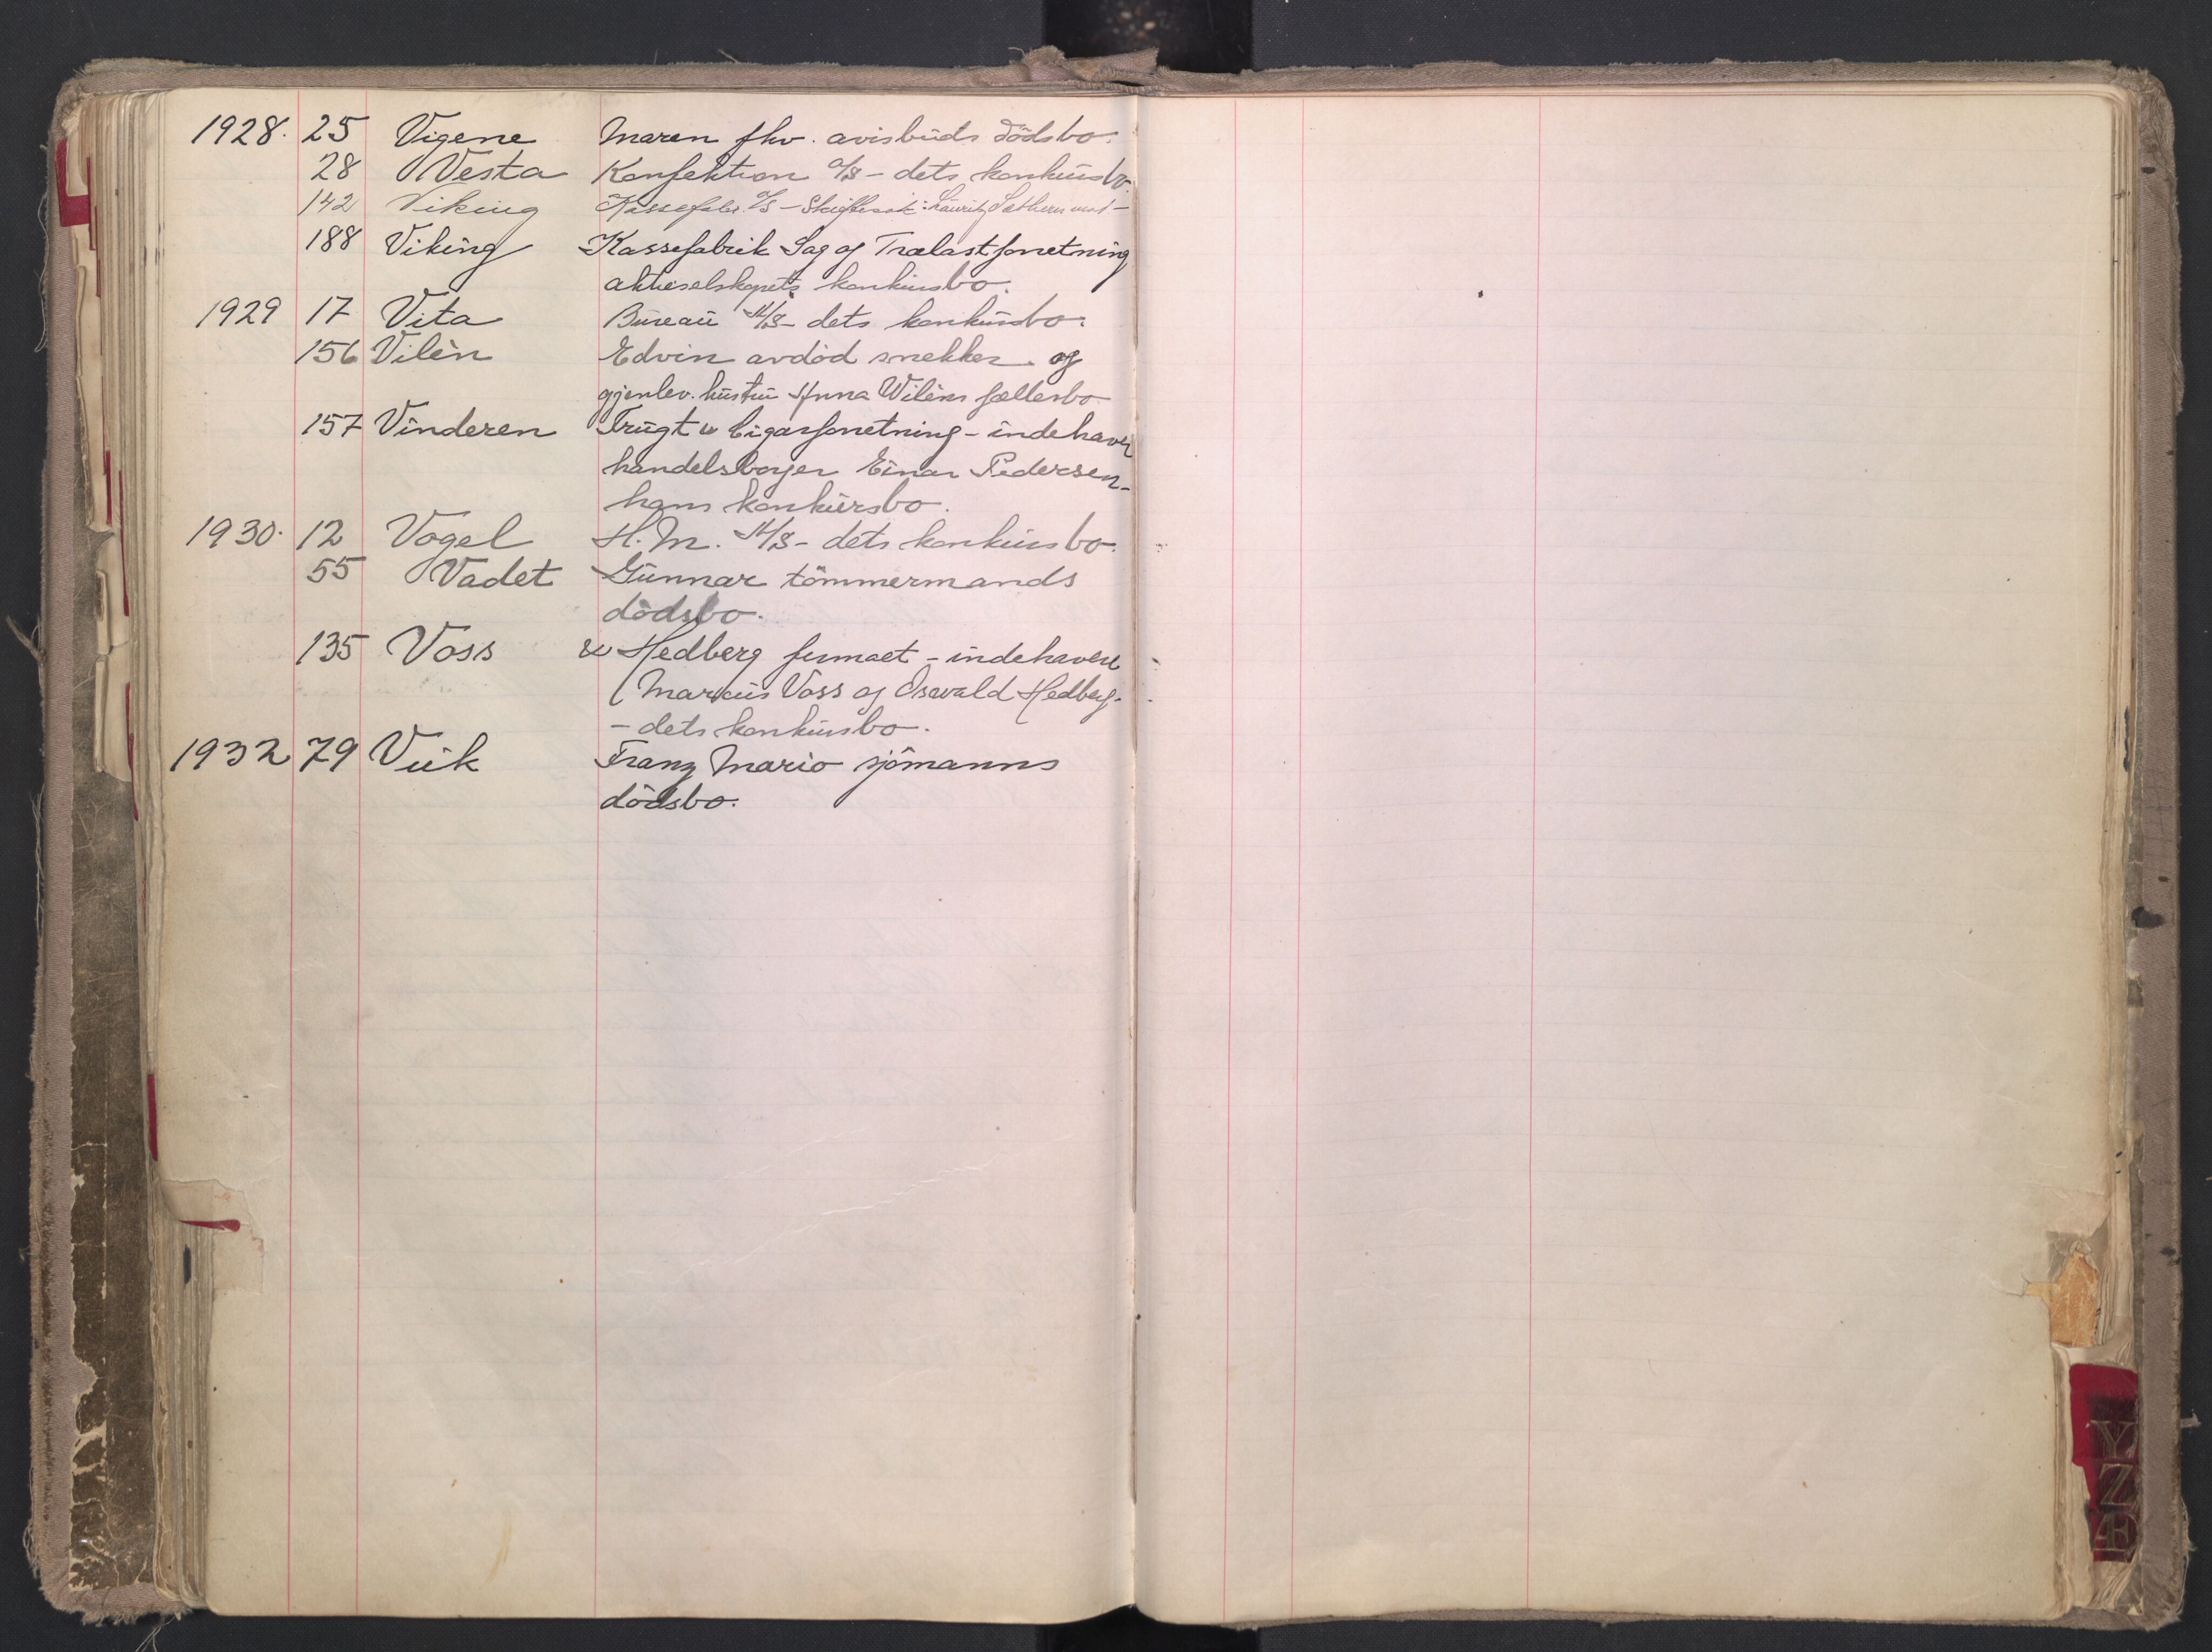 1928. 25 Vigene Maren fhv. avisbuds dödsbo.
28 Vesta Konfektion A/S - dets konkursbo.
142 Viking Kassefabr. A/S - Skiftesak: Lauritz mot -
188 Viking Kassefabrik Sag og Trælastforretning
aktieselskapets konkursbo.
1929 17 Vita Bureau A/S - dets konkursbo.
156 Vilén Edvin avdöd snekker og
gjenlev. hustru Anna Wiléns fællesbo
157 Vinderen Frugt & Cigarforretning - indehaver
handelsborger Einar Pedersen -
hans konkursbo.
1930. 12 Vogel H. M. A/S - dets konkursbo.
55 Vadet Gunnar tömmermands
dödsbo.
135 Voss & Hedberg firmaet - indehavere
(Marcus Voss og Oswald Hedberg -
- dets konkursbo.
1932 79 Viik Franz Mario sjömanns
dödsbo.
Y
Z
Æ